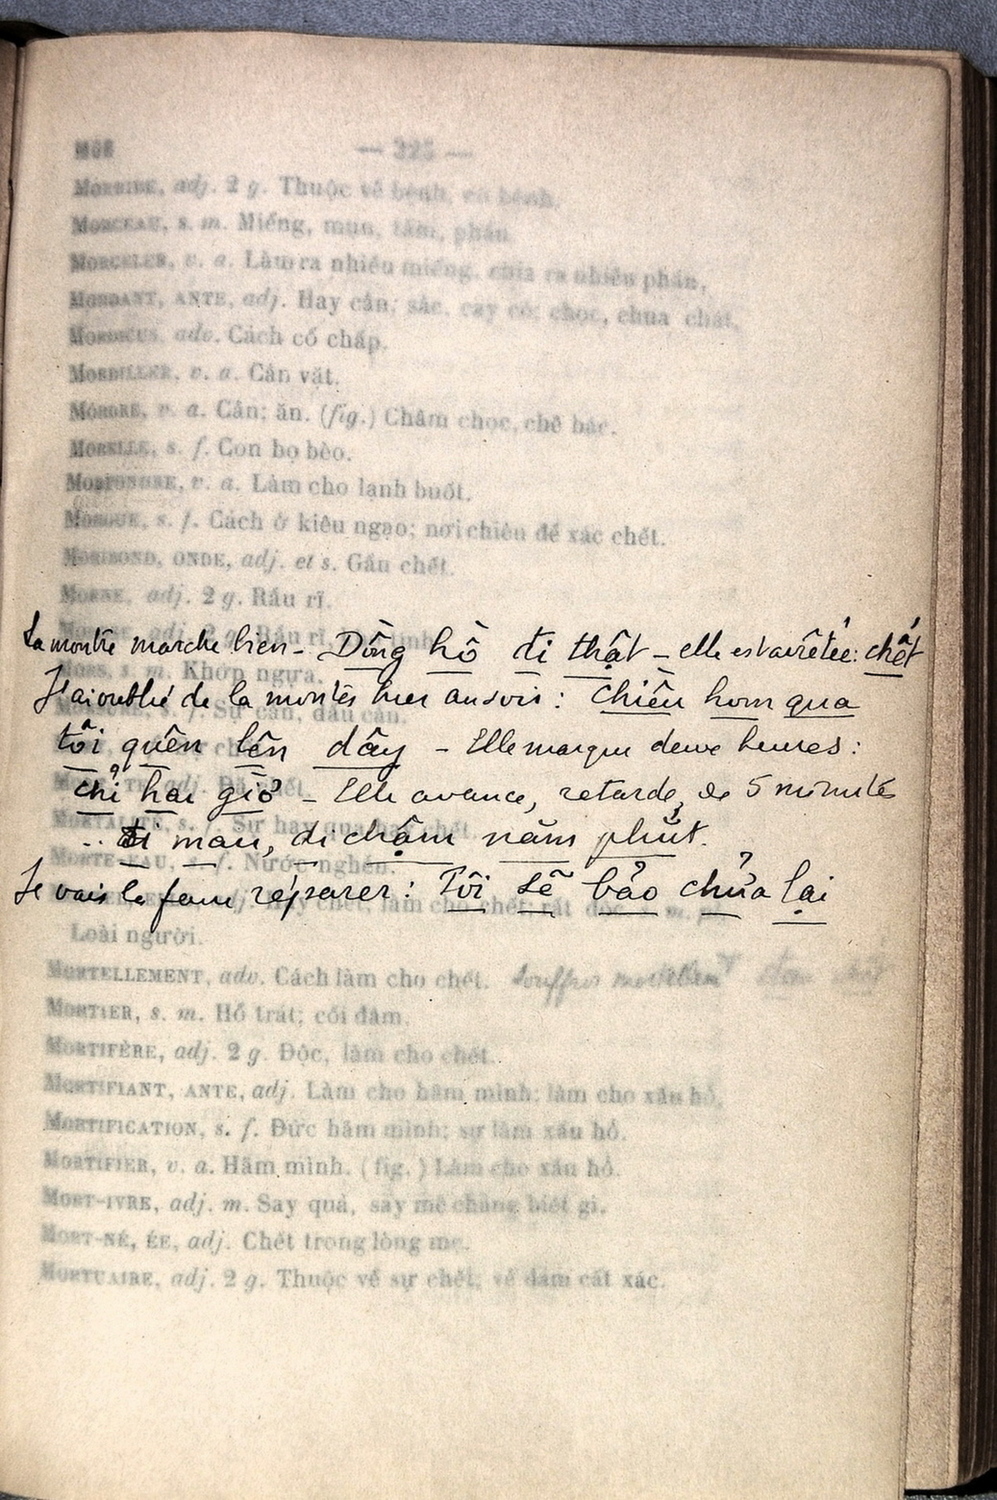 MORBIDE, adj. 2 g. Thuộc về bệnh, có bệnh.
MORCEAU, s. m. Miếng, mụn, tấm, phần
MORCELER, v. a. Làm ra nhiều miếng, chia ra nhiều phần,
MORDANT, ANTE, adj. Hay cắn; sắc, cay chua chát.
MORDICUS adv. Cách cố chấp.
MORDILLER, v. a. Cắn vặt.
MORDRE, v. a. Cắn; ăn. (fig.) Châm chọc, chê bác.
MORELLE, s. f. Con bọ bèo.
MORFONDRE, v. a. Làm cho lạnh buốt.
MORGUE, s. f. Cách ở kiêu ngạo; nơi chiên để xác chết.
MORIBOND, ONDE, adj. et s. Gần chết.
MORNE, adj. 2 g. Rầu rĩ.
La montre marche bien - Đồng hồ đi thật - elle est arrêtée: chết
MORS, s. m. Khớp ngựa.
J'ai oublié de la monter hier au soir: Chiều hom qua
tôi quên lên dây - Elle marque deux heures:
chỉ hai giờ - Elle avance, retarde, de 5 minutes
MORTALITÉ, s. f. Sự hay
đi mau, đi chậm năm phút.
MORTE-EAU, s. f. Nước nghén.
Je vais la faire réparer: Tôi sẽ bảo chửa lại
Loài người.
MORTELLEMENT, adv. Cách làm cho chết. Souffrir mortellemt
MORTIER, s. m. Hồ trát; cối đâm.
MORTIFÈRE, adj. 2 g. Độc, làm cho chết.
MORTIFIANT, ANTE, adj. Làm cho hãm mình; làm cho xấu hổ.
MORTIFICATION, s. f. Đức hãm mình; sự làm xấu hổ.
MORTIFIER, v. a. Hãm mình. (fig.) Làm cho xấu hổ.
MORT-IVRE, adj. m. Say quá, say mê chẳng biết gì.
MORT-NÉ, ÉE, adj. Chết trong lòng mẹ.
MORTUAIRE, adj. 2 g. Thuộc về sự chết, về đám cất xác.